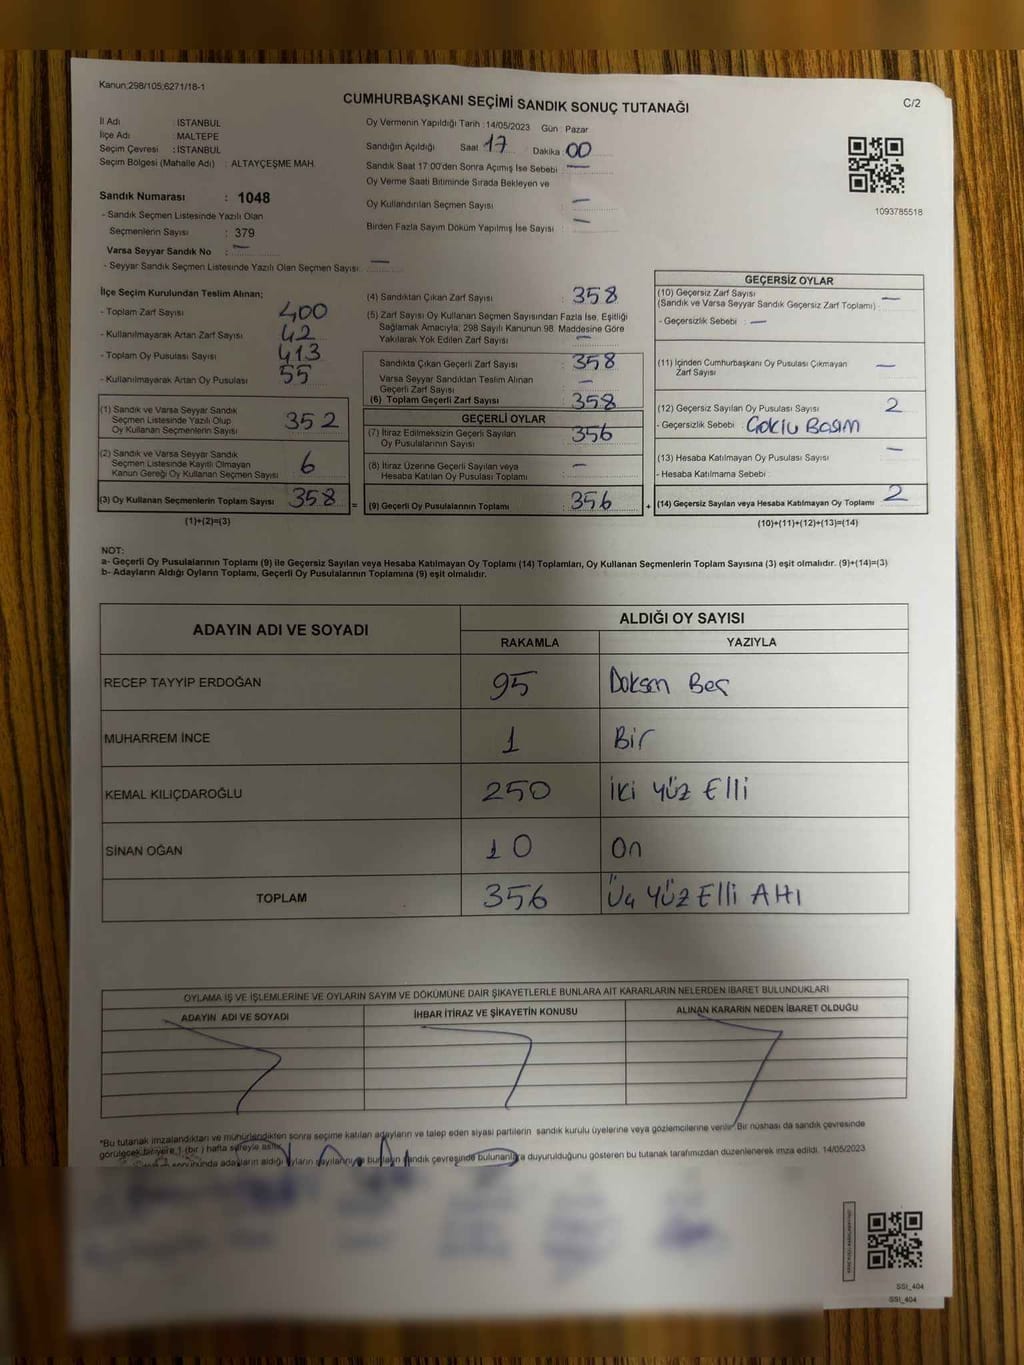 Kanun;298/105;6271/18-1
CUMHURBAŞKANI SEÇİMİ SANDIK SONUÇ TUTANAĞI
C/2
İl Adı : İSTANBUL
İlçe Adı : MALTEPE
Seçim Çevresi : İSTANBUL
Seçim Bölgesi (Mahalle Adı) : ALTAYÇEŞME MAH.
Oy Vermenin Yapıldığı Tarih : 14/05/2023 Gün : Pazar
Sandığın Açıldığı Saat 17 Dakika 00
Sandık Saat 17:00'den Sonra Açımış İse Sebebi : —
Oy Verme Saati Bitiminde Sırada Bekleyen ve
Oy Kullandırılan Seçmen Sayısı : —
Birden Fazla Sayım Döküm Yapılmış İse Sayısı : —
1093785518
Sandık Numarası : 1048
- Sandık Seçmen Listesinde Yazılı Olan
Seçmenlerin Sayısı : 379
Varsa Seyyar Sandık No : —
- Seyyar Sandık Seçmen Listesinde Yazılı Olan Seçmen Sayısı : —
İlçe Seçim Kurulundan Teslim Alınan;
- Toplam Zarf Sayısı 400
- Kullanılmayarak Artan Zarf Sayısı 42
- Toplam Oy Pusulası Sayısı 413
- Kullanılmayarak Artan Oy Pusulası 55
(1) Sandık ve Varsa Seyyar Sandık
Seçmen Listesinde Yazılı Olup
Oy Kullanan Seçmenlerin Sayısı 352
(2) Sandık ve Varsa Seyyar Sandık
Seçmen Listesinde Kayıtlı Olmayan
Kanun Gereği Oy Kullanan Seçmen Sayısı 6
(3) Oy Kullanan Seçmenlerin Toplam Sayısı 358 =
(1)+(2)=(3)
(4) Sandıktan Çıkan Zarf Sayısı : 358
(5) Zarf Sayısı Oy Kullanan Seçmen Sayısından Fazla İse, Eşitliği
Sağlamak Amacıyla; 298 Sayılı Kanunun 98. Maddesine Göre
Yakılarak Yok Edilen Zarf Sayısı : —
Sandıkta Çıkan Geçerli Zarf Sayısı : 358
Varsa Seyyar Sandıktan Teslim Alınan
Geçerli Zarf Sayısı : —
(6) Toplam Geçerli Zarf Sayısı : 358
GEÇERLİ OYLAR
(7) İtiraz Edilmeksizin Geçerli Sayılan
Oy Pusulalarının Sayısı : 356
(8) İtiraz Üzerine Geçerli Sayılan veya
Hesaba Katılan Oy Pusulası Toplamı : —
(9) Geçerli Oy Pusulalarının Toplamı : 356 +
GEÇERSİZ OYLAR
(10) Geçersiz Zarf Sayısı
(Sandık ve Varsa Seyyar Sandık Geçersiz Zarf Toplamı) : —
- Geçersizlik Sebebi : —
(11) İçinden Cumhurbaşkanı Oy Pusulası Çıkmayan
Zarf Sayısı : —
(12) Geçersiz Sayılan Oy Pusulası Sayısı : 2
- Geçersizlik Sebebi : Çoklu Basım
(13) Hesaba Katılmayan Oy Pusulası Sayısı : —
- Hesaba Katılmama Sebebi :
(14) Geçersiz Sayılan veya Hesaba Katılmayan Oy Toplamı : 2
(10)+(11)+(12)+(13)=(14)
NOT:
a- Geçerli Oy Pusulalarının Toplamı (9) ile Geçersiz Sayılan veya Hesaba Katılmayan Oy Toplamı (14) Toplamları, Oy Kullanan Seçmenlerin Toplam Sayısına (3) eşit olmalıdır. (9)+(14)=(3)
b- Adayların Aldığı Oyların Toplamı, Geçerli Oy Pusulalarının Toplamına (9) eşit olmalıdır.
ADAYIN ADI VE SOYADI ALDIĞI OY SAYISI
RAKAMLA YAZIYLA
RECEP TAYYİP ERDOĞAN 95 Doksan Beş
MUHARREM İNCE 1 Bir
KEMAL KILIÇDAROĞLU 250 İki Yüz Elli
SİNAN OĞAN 10 On
TOPLAM 356 Üç Yüz Elli Altı
OYLAMA İŞ VE İŞLEMLERİNE VE OYLARIN SAYIM VE DÖKÜMÜNE DAİR ŞİKAYETLERLE BUNLARA AİT KARARLARIN NELERDEN İBARET BULUNDUKLARI
ADAYIN ADI VE SOYADI İHBAR İTİRAZ VE ŞİKAYETİN KONUSU ALINAN KARARIN NEDEN İBARET OLDUĞU
*Bu tutanak imzalandıktan ve mühürlendikten sonra seçime katılan adayların ve talep eden siyasi partilerin sandık kurulu üyelerine veya gözlemcilerine verilir. Bir nüshası da sandık çevresinde
görülecek bir yere 1 (bir) hafta süreyle asılır.
sonucunda adayların aldığı oyların sayılarını ve bunların sandık çevresinde bulunanlara duyurulduğunu gösteren bu tutanak tarafımızdan düzenlenerek imza edildi. 14/05/2023
SSI_404
SSI_404